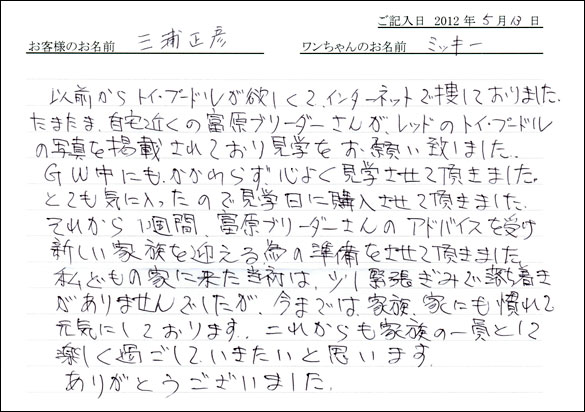 ご記入日 2012年5月13日
お客様のお名前 三浦正彦 ワンちゃんのお名前 ミッキー
以前からトイ・プードルが欲しくて、インターネットで捜しておりました。
たまたま、自宅近くの富原ブリーダーさんが、レッドのトイ・プードル
の写真を掲載されており見学をお願い致しました。
GW中にも、かかわらず、心よく見学させて頂きました。
とても気に入ったので見学日に購入させて頂きました。
それから1週間、富原ブリーダーさんのアドバイスを受け
新しい家族を迎える為の準備をさせて頂きました。
私どもの家に来た当初は、少し緊張ぎみで落ち着き
がありませんでしたが、今までは、家族、家にも慣れて
元気にしております。これからも家族の一員として
楽しく過ごしていきたいと思います。
ありがとうございました。